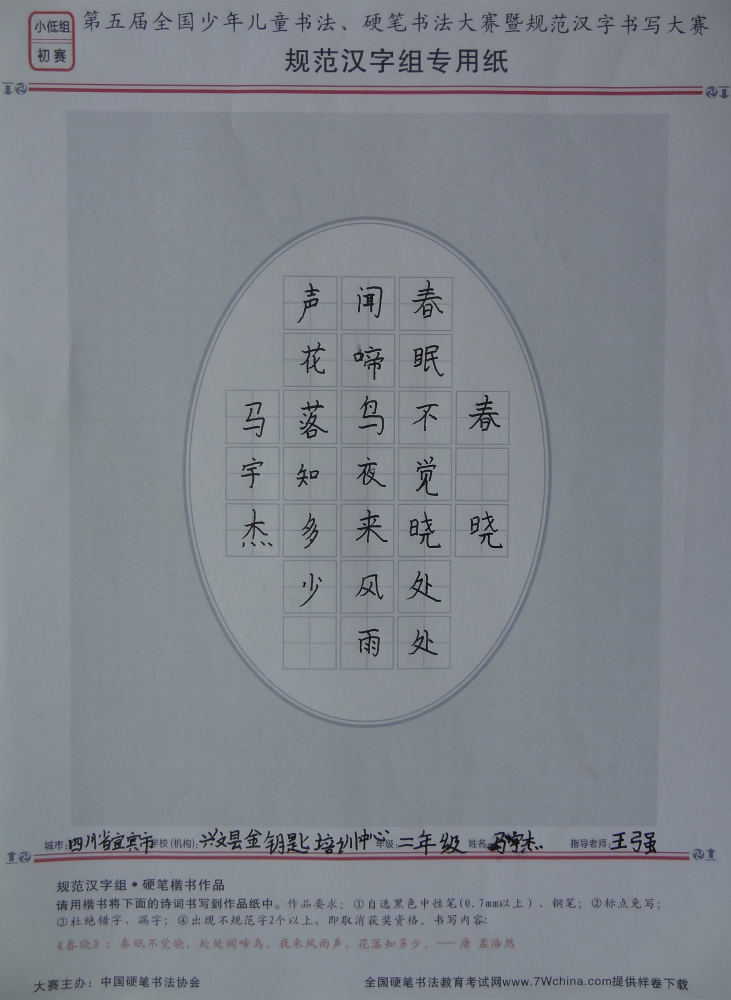 小低组
初赛
第五届全国少年儿童书法、硬笔书法大赛暨规范汉字书写大赛
规范汉字组专用纸
春晓
春眠不觉晓处处
闻啼鸟夜来风雨
声花落知多少
马宇杰
城市:四川省宜宾市 学校(机构):兴文县金钥匙培训中心 年级:二年级 姓名:马宇杰 指导老师:王弓强
规范汉字组·硬笔楷书作品
请用楷书将下面的诗词书写到作品纸中。作品要求：①自选黑色中性笔(0.7mm以上)、钢笔；②标点免写；
③杜绝错字、漏字；④出现不规范字2个以上，即取消获奖资格，书写内容：
《春晓》：春眠不觉晓，处处闻啼鸟，夜来风雨声，花落知多少，——唐 孟浩然
大赛主办：中国硬笔书法协会 全国硬笔书法教育考试网www.7Wchina.com提供样卷下载